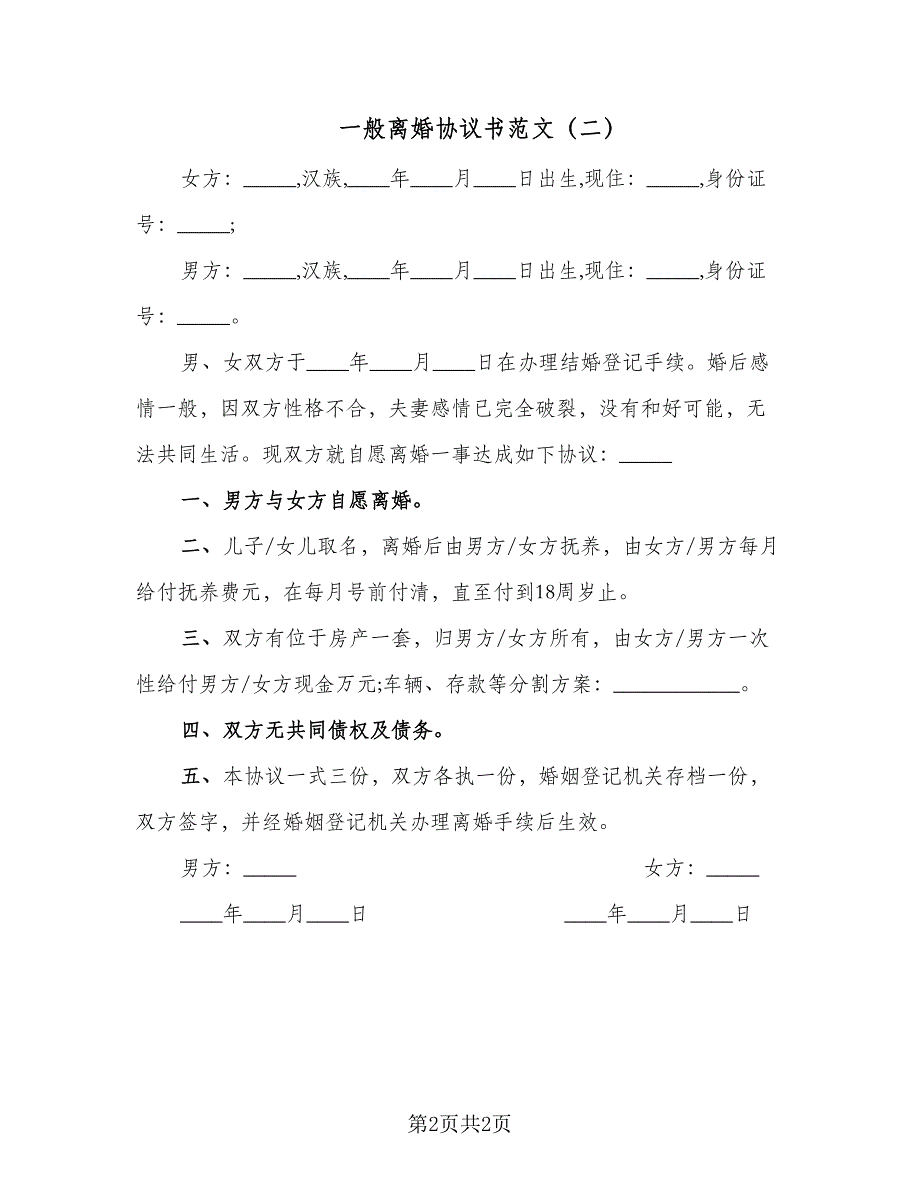 一般离婚协议书范文（二）
女方：_____,汉族,____年____月____日出生,现住：_____,身份证
号：_____;
男方：_____,汉族,____年____月____日出生,现住：_____,身份证
号：_____。
男、女双方于____年____月____日在办理结婚登记手续。婚后感
情一般，因双方性格不合，夫妻感情已完全破裂，没有和好可能，无
法共同生活。现双方就自愿离婚一事达成如下协议：_____
一、男方与女方自愿离婚。
二、儿子/女儿取名，离婚后由男方/女方抚养，由女方/男方每月
给付抚养费元，在每月号前付清，直至付到18周岁止。
三、双方有位于房产一套，归男方/女方所有，由女方/男方一次
性给付男方/女方现金万元;车辆、存款等分割方案：____________。
四、双方无共同债权及债务。
五、本协议一式三份，双方各执一份，婚姻登记机关存档一份，
双方签字，并经婚姻登记机关办理离婚手续后生效。
男方：_____ 女方：_____
____年____月____日 ____年____月____日
第2页共2页